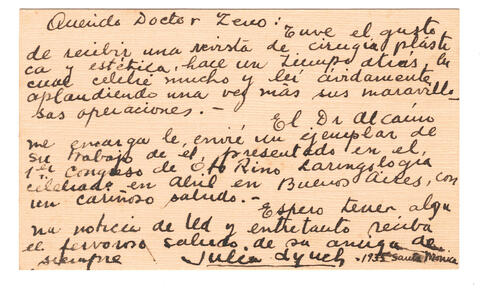 Querido Doctor Zeno:
Tuve el gusto
de recibir una revista de cirugía plásti
ca y estética, hace un tiempo atrás, la
cual celebré mucho y leí ávidamente
aplaudiendo una vez más sus maravillo
sas operaciones. -
El Dr Alcaíno
me encarga le envíe un ejemplar de
su trabajo de el presentado en el
1er Congreso de Oto Rino Laringología
celebrado en Abril en Buenos Aires, con
un cariñoso saludo. -
Espero tener algu
na noticia de Ud y entretanto reciba
el fervoroso saludo de su amiga de
siempre Julia Lynch - 1935 Santa Mónica